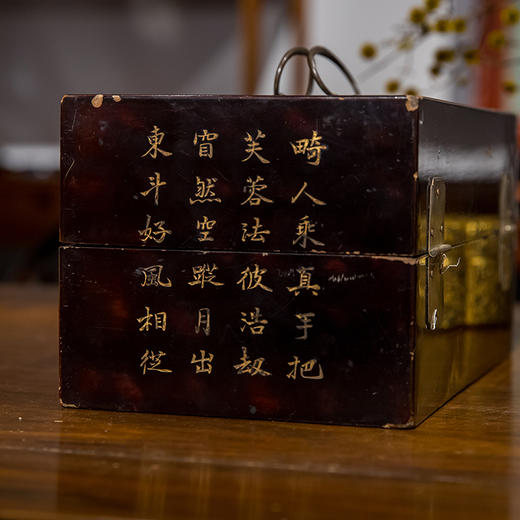 畸人乘真手把
芙蓉法彼浩劫
窅然空蹤月出
東斗好風相從